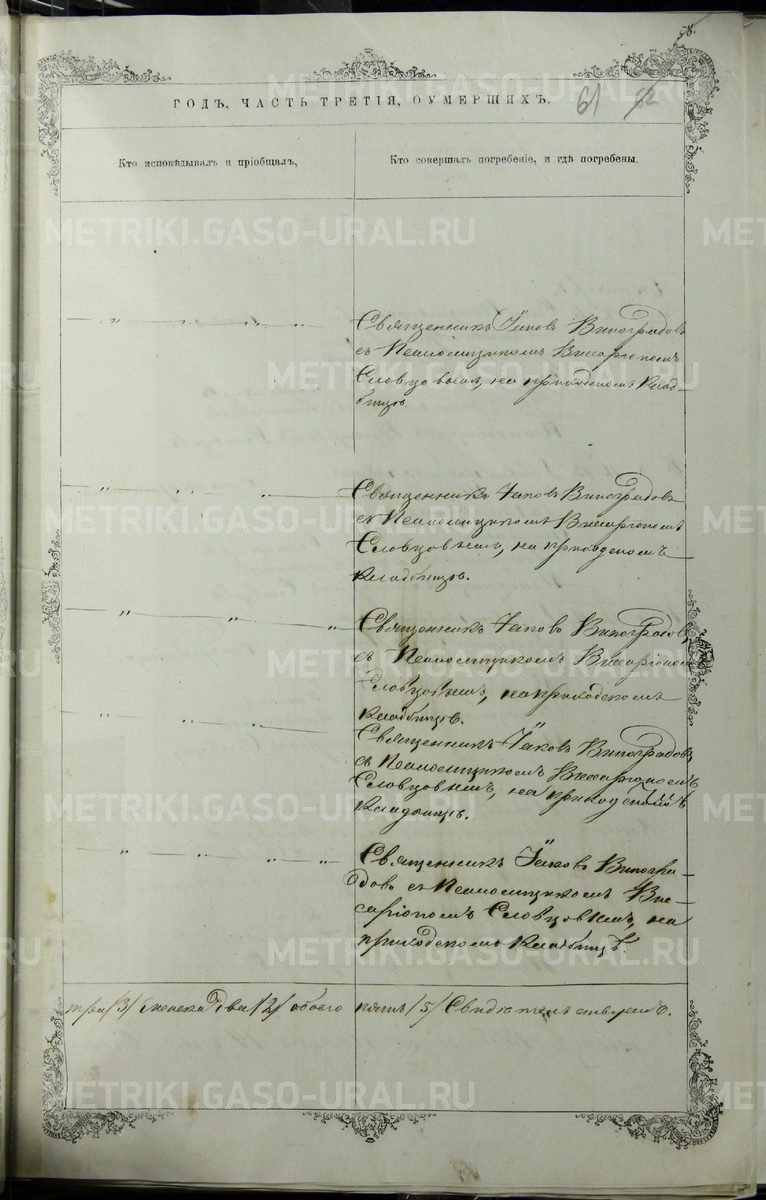 58.
ГОДЪ, ЧАСТЬ ТРЕТІЯ, О УМЕРШИХЪ.
61 62
Кто исповѣдывалъ и пріобщалъ,
Кто совершалъ погребеніе, и гдѣ погребены.
Священникъ Іаковъ Виноградовъ
съ Псаломщикомъ Виссаріономъ
Словцовымъ, на приходскомъ Клад-
бищѣ.
Священникъ Іаковъ Виноградовъ
съ Псаломщикомъ Виссаріономъ
Словцовымъ, на приходскомъ
Кладбищѣ.
Священникъ Іаковъ Виноградовъ
съ Псаломщикомъ Виссаріономъ
Словцовымъ, на приходскомъ
Кладбищѣ.
Священникъ Іаковъ Виноградовъ
съ Псаломщикомъ Виссаріономъ
Словцовымъ, на приходскомъ
Кладбищѣ.
Священникъ Іаковъ Виногра-
довъ съ Псаломщикомъ Вис-
саріономъ Словцовымъ, на
приходскомъ Кладбищѣ.
три /3/ женска два /2/ обоего пять /5/ Свидѣтельствуемъ.
METRIKI.GASO-URAL.RU